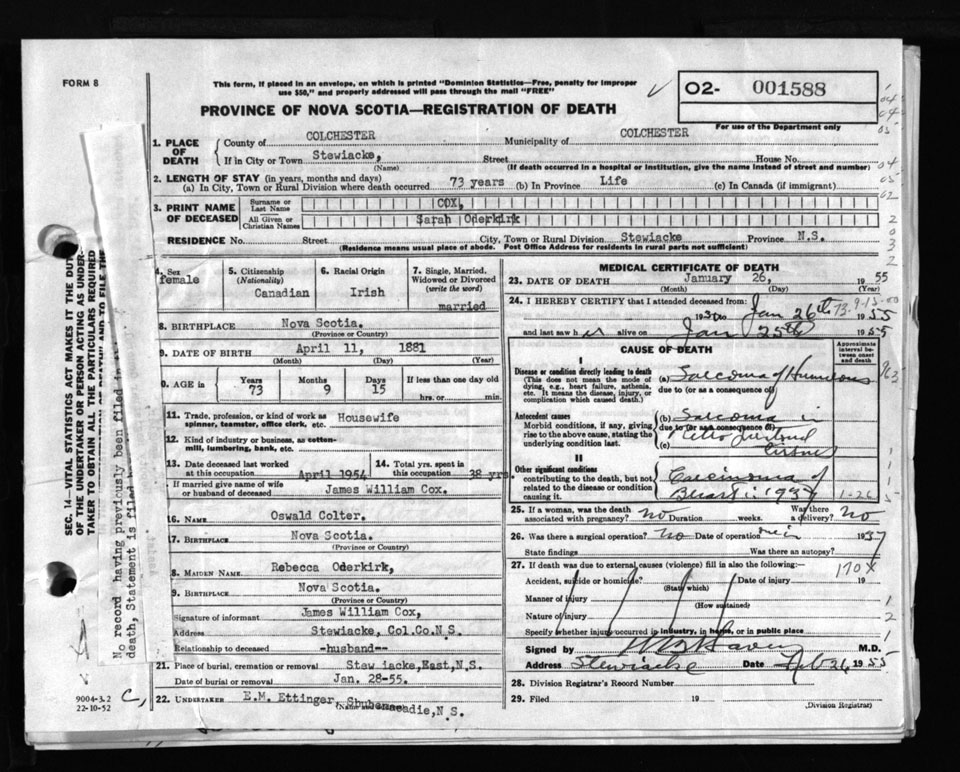 FORM 8
This form, if placed in an envelope, on which is printed "Dominion Statistics—Free, penalty for improper
use $50," and properly addressed will pass through the mail "FREE"
O2- 001588
For use of the Department only
PROVINCE OF NOVA SCOTIA—REGISTRATION OF DEATH
1. PLACE OF DEATH
County of COLCHESTER Municipality of COLCHESTER
If in City or Town Stewiacke, Street House No.
(Name) (If death occurred in a hospital or institution, give the name instead of street and number)
2. LENGTH OF STAY (in years, months and days)
(a) In City, Town or Rural Division where death occurred 73 years (b) In Province Life (c) In Canada (if immigrant)
3. PRINT NAME OF DECEASED
Surname or Last Name COX,
All Given or Christian Names Sarah Oderkirk
RESIDENCE No. Street City, Town or Rural Division Stewiacke Province N.S.
(Residence means usual place of abode. Post Office Address for residents in rural parts not sufficient)
4. Sex female
5. Citizenship (Nationality) Canadian
6. Racial Origin Irish
7. Single, Married, Widowed or Divorced (write the word) married
8. BIRTHPLACE Nova Scotia.
(Province or Country)
9. DATE OF BIRTH April 11, 1881
(Month) (Day) (Year)
0. AGE in Years 73 Months 9 Days 15 If less than one day old hrs. or min.
11. Trade, profession, or kind of work as spinner, teamster, office clerk, etc. Housewife
12. Kind of industry or business, as cotton-mill, lumbering, bank, etc.
13. Date deceased last worked at this occupation April 1954
14. Total yrs. spent in this occupation 38 yrs.
If married give name of wife or husband of deceased James William Cox.
16. NAME Oswald Colter.
17. BIRTHPLACE Nova Scotia.
(Province or Country)
8. MAIDEN NAME Rebecca Oderkirk,
9. BIRTHPLACE Nova Scotia.
(Province or Country)
Signature of informant James William Cox,
Address Stewiacke, Col.Co.N.S.
Relationship to deceased -husband--
21. Place of burial, cremation or removal Stewiacke,East,N.S.
Date of burial or removal Jan. 28-55.
22. UNDERTAKER E.M. Ettinger, Shubenacadie,N.S.
(Name and Address)
MEDICAL CERTIFICATE OF DEATH
23. DATE OF DEATH January 26, 1955
(Month) (Day)
24. I HEREBY CERTIFY that I attended deceased from
to Jan 26th 1955
and last saw her alive on Jan 25th 1955
CAUSE OF DEATH
Approximate interval between onset and death
I
Disease or condition directly leading to death
(This does not mean the mode of dying, e.g., heart failure, asthenia, etc. It means the disease, injury, or complication which caused death.)
(a) Sarcoma of Humerous
due to (or as a consequence of)
Antecedent causes
Morbid conditions, if any, giving rise to the above cause, stating the underlying condition last.
(b) Sarcoma
due to (or as a consequence of)
(c)
II
Other significant conditions contributing to the death, but not related to the disease or condition causing it.
Carcinoma of
Breast 1937
1-26
25. If a woman, was the death associated with pregnancy? no Duration weeks. Was there a delivery? no
26. Was there a surgical operation? no Date of operation 1937
State findings Was there an autopsy?
27. If death was due to external causes (violence) fill in also the following:—
170X
Accident, suicide or homicide? Date of injury 19
(State which)
Manner of injury
(How sustained)
Nature of injury
Specify whether injury occurred in industry, in home, or in public place
Signed by M.D.
Address Stewiacke Date Feb 26, 1955
28. Division Registrar's Record Number
29. Filed 19
(Division Registrar)
SEC. 14—VITAL STATISTICS ACT MAKES IT THE DUTY
OF THE UNDERTAKER OR PERSON ACTING AS UNDER-
TAKER TO OBTAIN ALL THE PARTICULARS REQUIRED
No record having previously been filed in
death, Statement is filed
9004-3.2
22-10-52